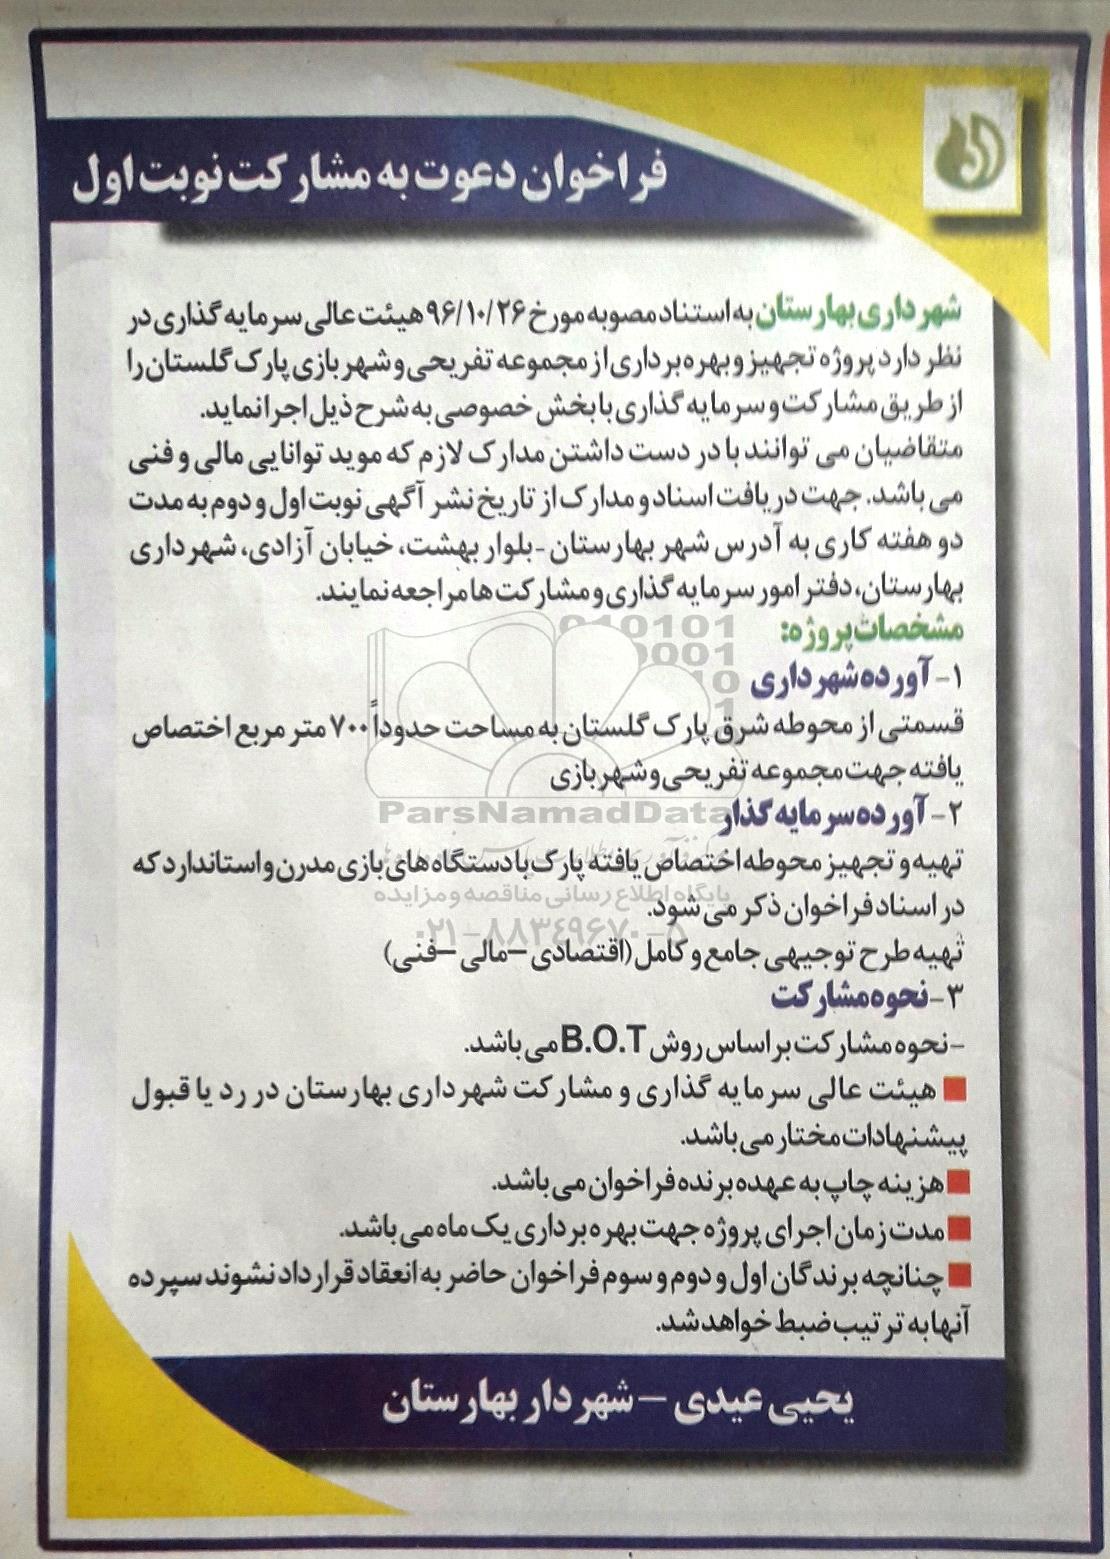 فراخوان دعوت به مشارکت نوبت اول
شهرداری بهارستان به استناد مصوبه مورخ ۹۶/۱۰/۲۶ هیئت عالی سرمایه گذاری در
نظر دارد پروژه تجهیز و بهره برداری از مجموعه تفریحی و شهربازی پارک گلستان را
از طریق مشارکت و سرمایه گذاری با بخش خصوصی به شرح ذیل اجرا نماید.
متقاضیان می توانند با در دست داشتن مدارک لازم که موید توانایی مالی و فنی
می باشد. جهت دریافت اسناد و مدارک از تاریخ نشر آگهی نوبت اول و دوم به مدت
دو هفته کاری به آدرس شهر بهارستان -بلوار بهشت، خیابان آزادی، شهرداری
بهارستان، دفتر امور سرمایه گذاری و مشارکت ها مراجعه نمایند.
مشخصات پروژه:
۱- آورده شهرداری
قسمتی از محوطه شرق پارک گلستان به مساحت حدوداً ۷۰۰ متر مربع اختصاص
یافته جهت مجموعه تفریحی و شهربازی
۲- آورده سرمایه گذار
تهیه و تجهیز محوطه اختصاص یافته پارک با دستگاه های بازی مدرن و استاندارد که
در اسناد فراخوان ذکر می شود.
تهیه طرح توجیهی جامع و کامل (اقتصادی –مالی –فنی)
۳- نحوه مشارکت
-نحوه مشارکت بر اساس روش B.O.T می باشد.
هیئت عالی سرمایه گذاری و مشارکت شهرداری بهارستان در رد یا قبول
پیشنهادات مختار می باشد.
هزینه چاپ به عهده برنده فراخوان می باشد.
مدت زمان اجرای پروژه جهت بهره برداری یک ماه می باشد.
چنانچه برندگان اول و دوم و سوم فراخوان حاضر به انعقاد قرارداد نشوند سپرده
آنها به ترتیب ضبط خواهد شد.
یحیی عیدی – شهردار بهارستان
ParsNamadData
پایگاه اطلاع رسانی مناقصه و مزایده
۰۲۱-۸۸۳۴۹۶۷۰-۵